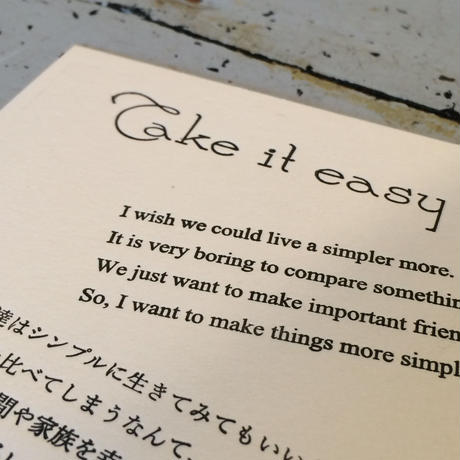 Take it easy
I wish we could live a simpler more.
It is very boring to compare
We just want to make important
So, I want to make things more
達はシンプルに生きてみてもいい
比べてしまうなんて、
間や家族を